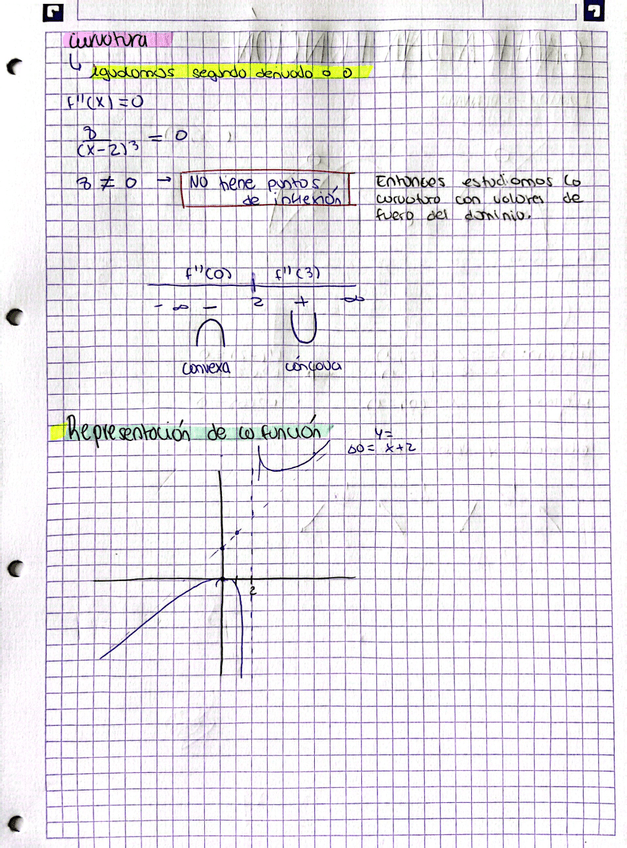 curvatura
↳ igualamos segunda derivada a 0
f''(x) = 0
8/(x-2)³ = 0
8 ≠ 0 → NO tiene puntos de inflexión
Entonces estudiamos la
curvatura con valores de
fuera del dominio.
f''(0) f''(3)
-∞ - 2 + ∞
convexa cóncava
Representación de la función
y=
AO = x+2
2